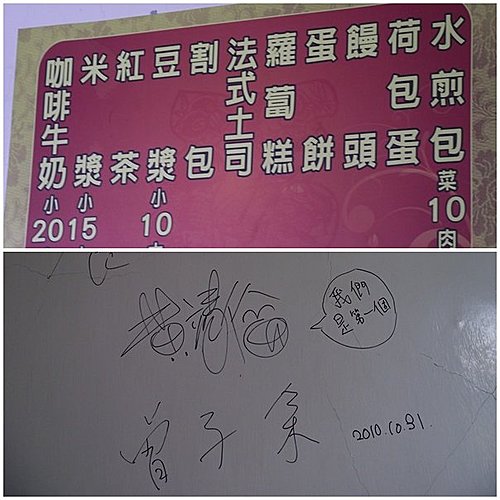 水煎包 菜10肉
荷包蛋
饅頭
蛋餅
蘿蔔糕
法式土司
割包
豆漿 小10
紅茶
米漿 小15
咖啡牛奶 小20
我們
是第一個
曾子余
2010.10.31.